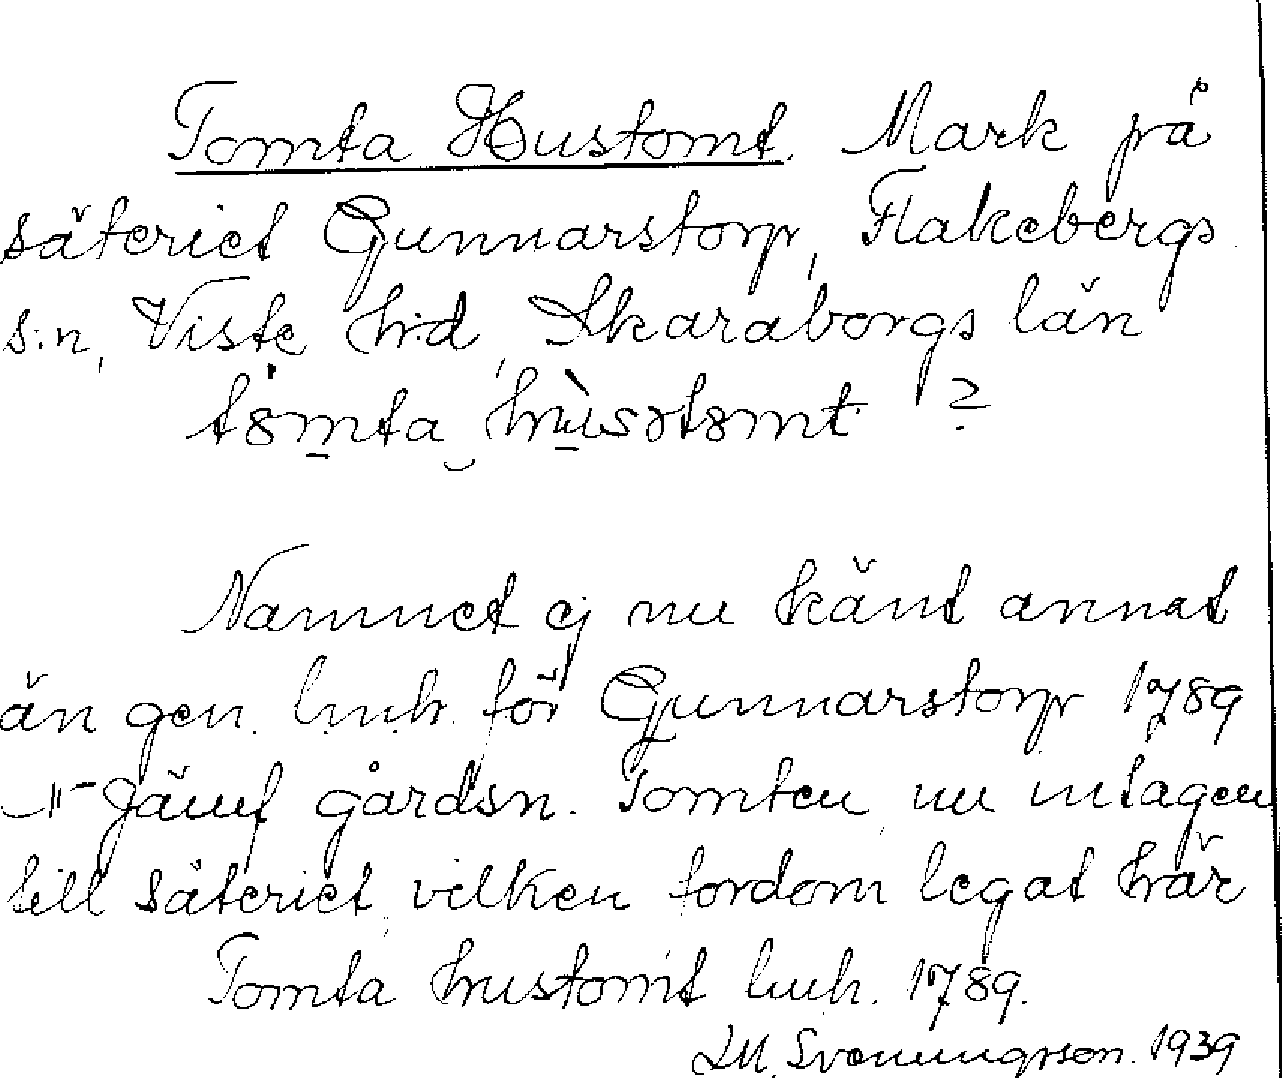 Tomta Hustomt. Mark på
säteriet Gunnarstorp, Flakebergs
s:n, Viste h:d, Skaraborgs län
Namnet ej nu känt annat
än gen. lmh. för Gunnarstorp 1789
Jämf gårdsn. Tomten nu intagen
till säteriet, vilken fordom legat här
Tomta hustomt lmh. 1789.
Svenungsson. 1939